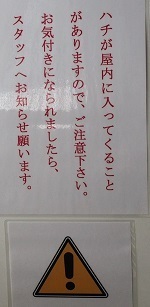 ハチが屋内に入ってくること
がありますので、ご注意下さい。
お気付きになられましたら、
スタッフへお知らせ願います。